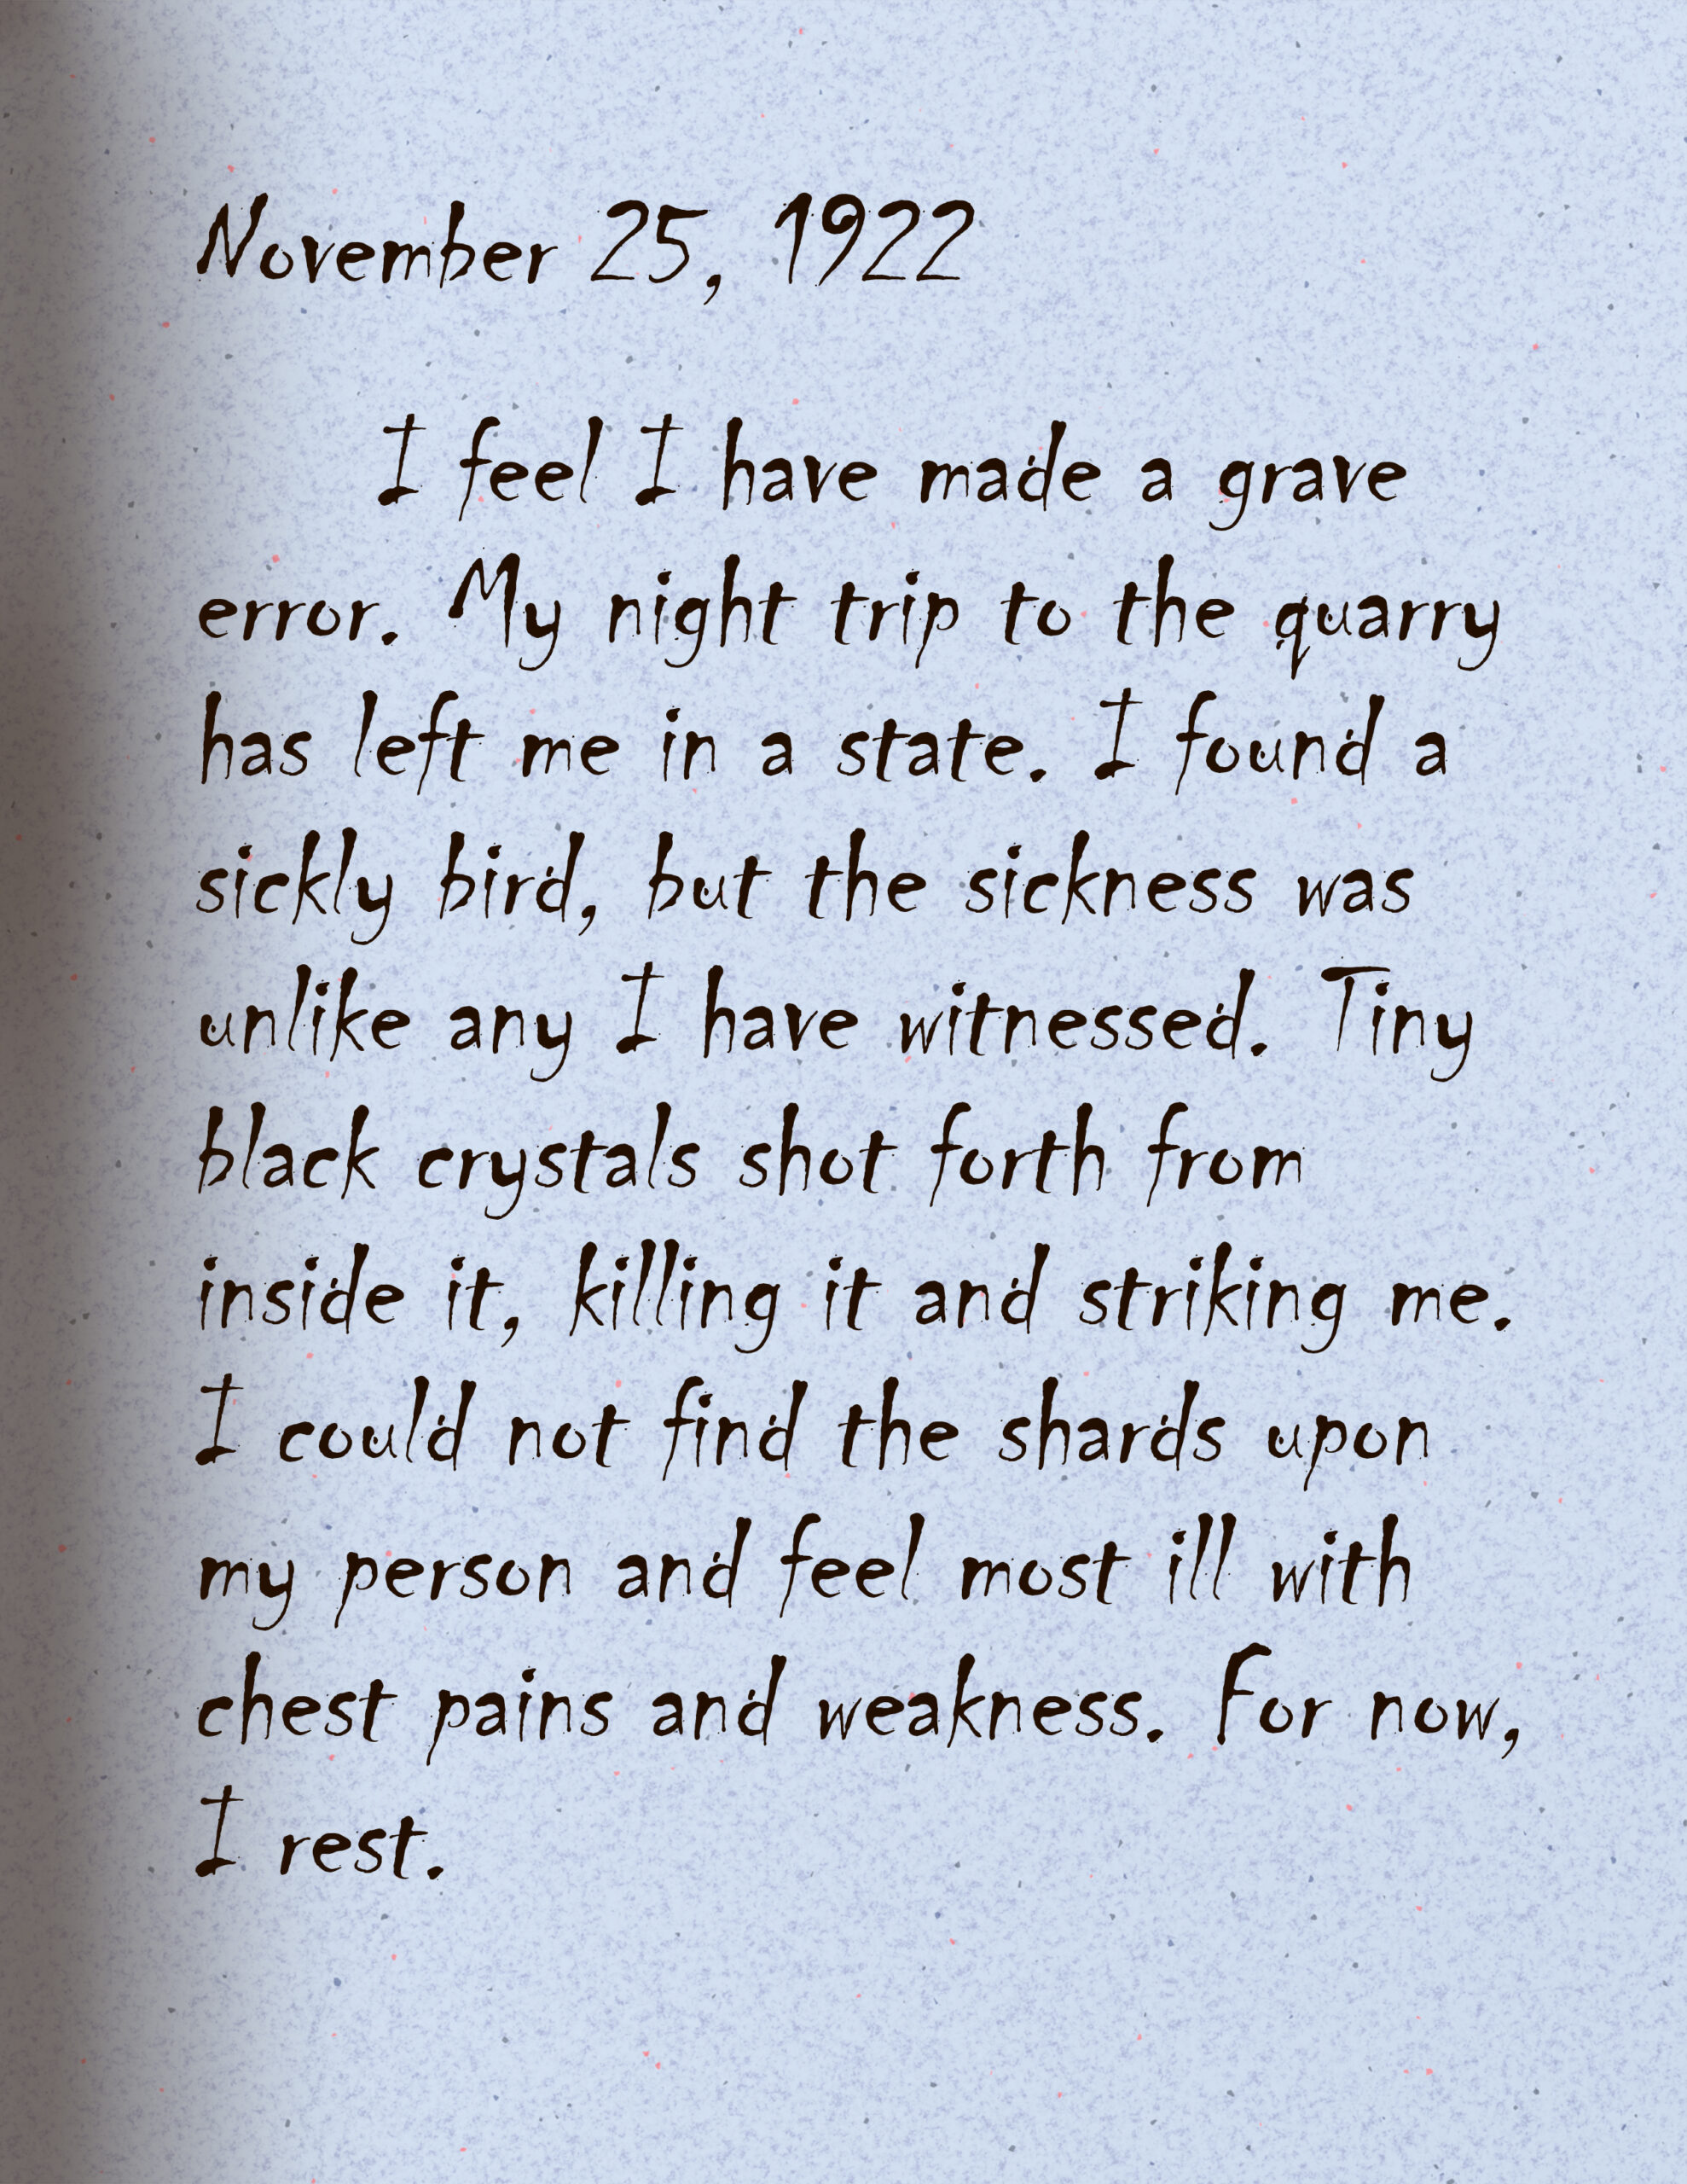 November 25, 1922
I feel I have made a grave
error. My night trip to the quarry
has left me in a state. I found a
sickly bird, but the sickness was
unlike any I have witnessed. Tiny
black crystals shot forth from
inside it, killing it and striking me.
I could not find the shards upon
my person and feel most ill with
chest pains and weakness. For now,
I rest.